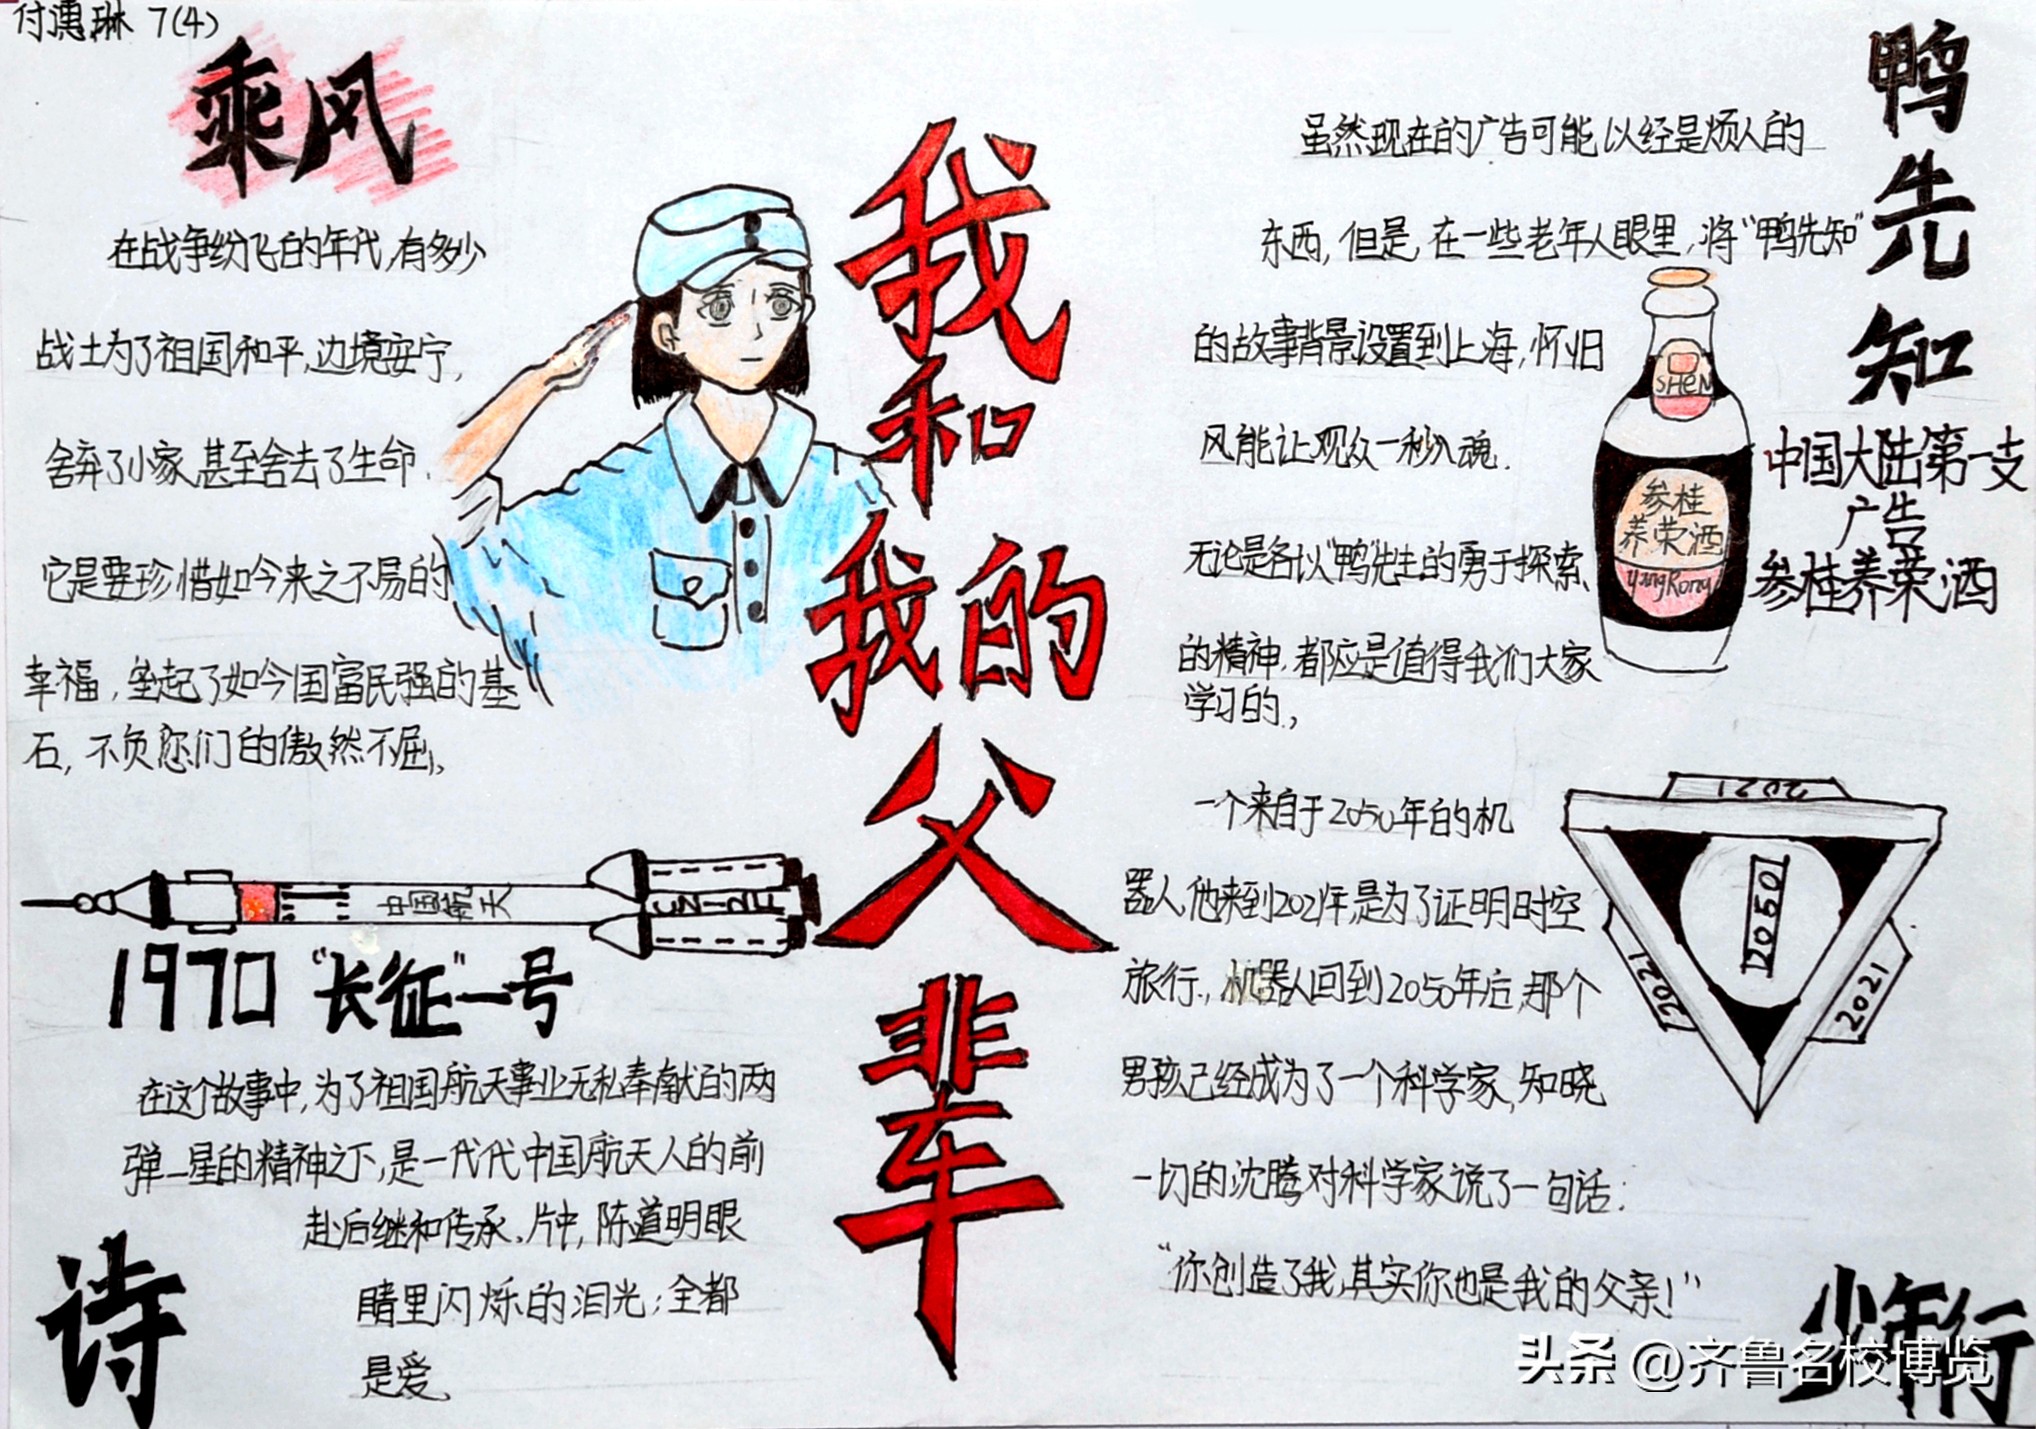 付惠琳 7(4)
乘风
在战争纷飞的年代,有多少
战士为了祖国和平,边境安宁,
舍弃了小家,甚至舍去了生命.
它是要珍惜如今来之不易的
幸福,垒起了如今国富民强的基
石,不负您们的傲然不屈。
中国航天
1970“长征”一号
在这个故事中,为了祖国航天事业无私奉献的两
弹一星的精神之下,是一代代中国航天人的前
赴后继和传承。片中,陈道明眼
睛里闪烁的泪光;全都
是爱
诗
我和我的父辈
鸭先知
虽然现在的广告可能以经是烦人的
东西,但是,在一些老年人眼里,将“鸭先知”
的故事背景设置到上海,怀旧
风能让观众一秒入魂.
无论是各以“鸭”先生的勇于探索、
的精神,都应是值得我们大家
学习的。
SHEN
参桂
养荣酒
YangRong
中国大陆第一支
广告
参桂养荣酒
一个来自于2050年的机
器人,他来到2021年,是为了证明时空
旅行。机器人回到2050年后,那个
男孩已经成为了一个科学家,知晓
一切的沈腾对科学家说了一句话:
“你创造了我,其实你也是我的父亲!”
2021
2050
2021
2021
少年行
头条 @齐鲁名校博览